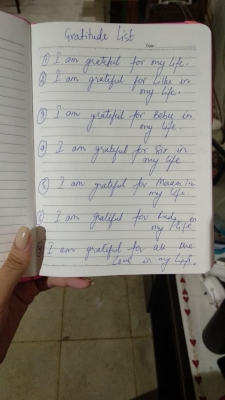 Gratitude List
Date:
① I am grateful for my life.
② I am grateful for in
my life.
③ I am grateful for Bebu in
my life.
④ I am grateful for Sir in
my life
⑤ I am grateful for Maam in
my life.
I am grateful for in
my life
I am grateful for all the
love in my life.